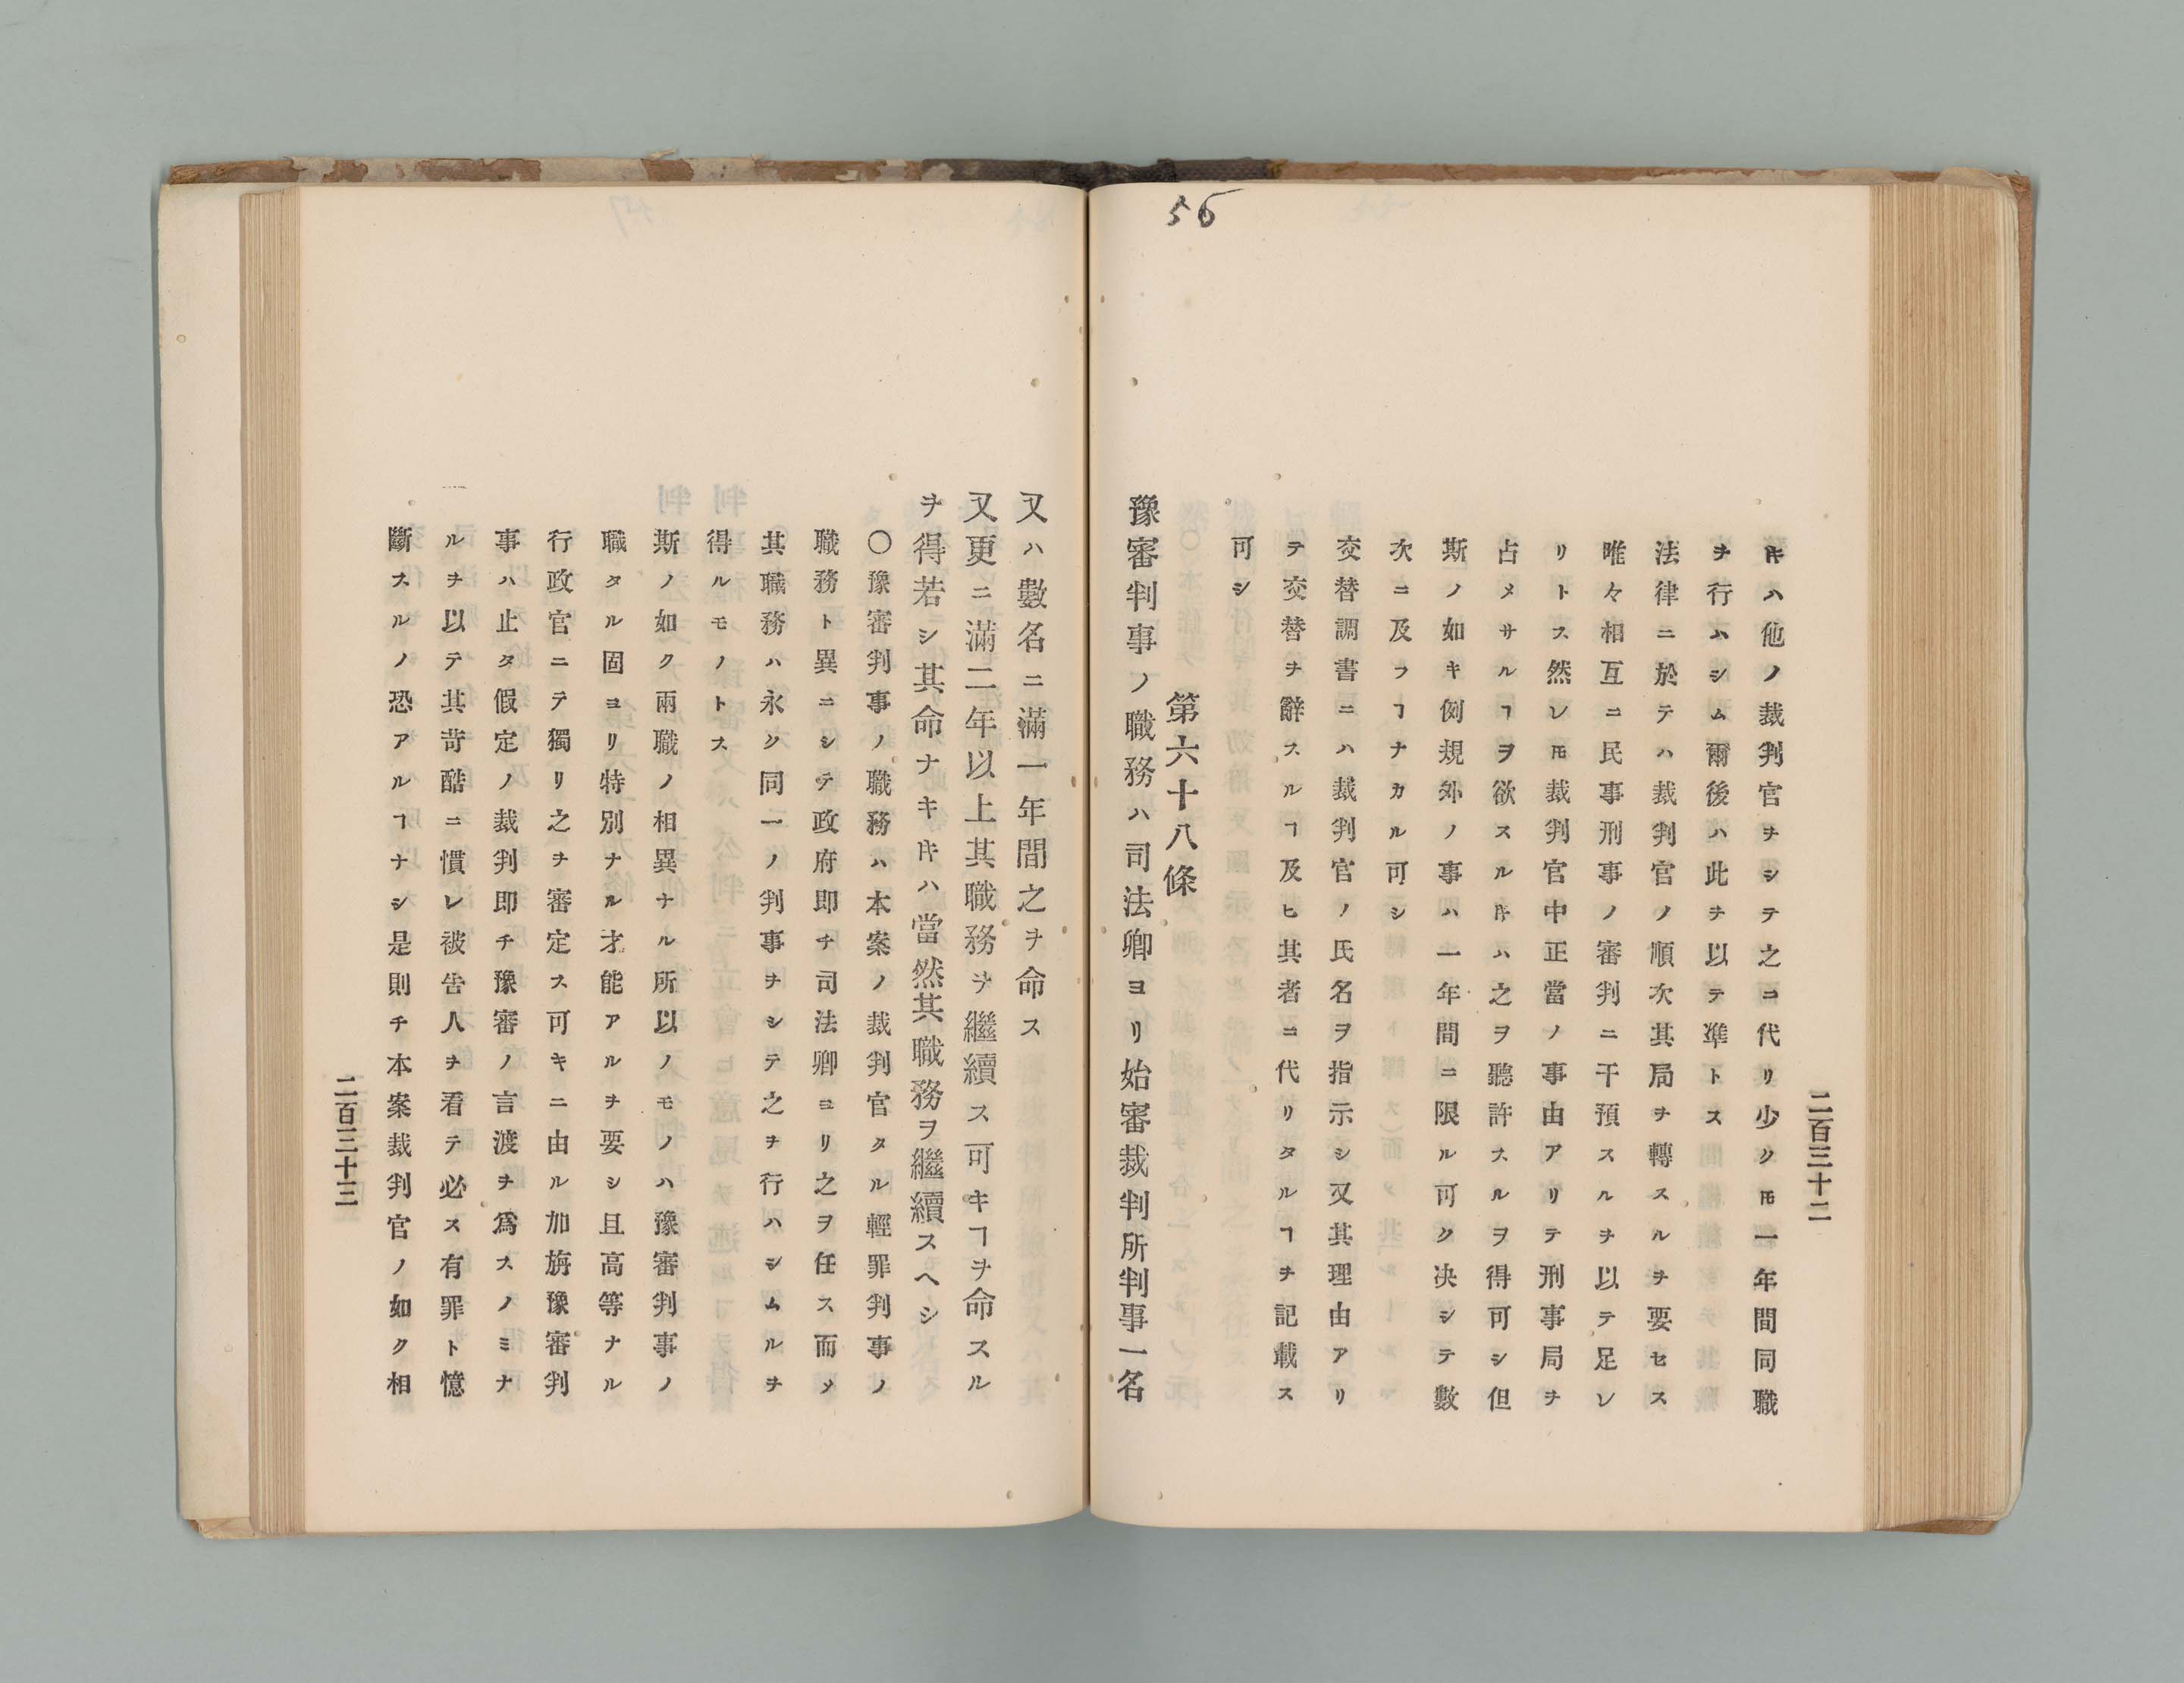 56
二百三十二
ꓘハ他ノ裁判官ヲシテ之ニ代リ少ク𪜈一年間同職
ヲ行ハシム爾後ハ此ヲ以テ凖トス
法律ニ於テハ裁判官ノ順次其局ヲ轉スルヲ要セス
唯々相互ニ民事刑事ノ審判ニ干預スルヲ以テ足レ
リトス然レ𪜈裁判官中正當ノ事由アリテ刑事局ヲ
占メサルヿヲ欲スル𬼀ハ之ヲ聽許スルヲ得可シ但
斯ノ如キ例規外ノ事ハ一年間ニ限ル可ク决シテ數
次ニ及フヿナカル可シ
交替調書ニハ裁判官ノ氏名ヲ指示シ又其理由アリ
テ交替ヲ辭スルヿ及ヒ其者ニ代リタルヿヲ記載ス
可シ
第六十八條
豫審判事ノ職務ハ司法卿ヨリ始審裁判所判事一名
又ハ數名ニ滿一年間之ヲ命ス
又更ニ滿二年以上其職務ヲ繼續ス可キヿヲ命スル
ヲ得若シ其命ナキ𬼀ハ當然其職務ヲ繼續スヘシ
〇豫審判事ノ職務ハ本案ノ裁判官タル輕罪判事ノ
職務ト異ニシテ政府即チ司法卿ヨリ之ヲ任ス而メ
其職務ハ永ク同一ノ判事ヲシテ之ヲ行ハシムルヲ
得ルモノトス
斯ノ如ク兩職ノ相異ナル所以ノモノハ豫審判事ノ
職タル固ヨリ特別ナル才能アルヲ要シ且高等ナル
行政官ニテ獨リ之ヲ審定ス可キニ由ル加旃豫審判
事ハ止タ假定ノ裁判即チ豫審ノ言渡ヲ爲スノミナ
ルヲ以テ其苛酷ニ慣レ被告人ヲ看テ必ス有罪ト憶
斷スルノ恐アルヿナシ是則チ本案裁判官ノ如ク相
二百三十三